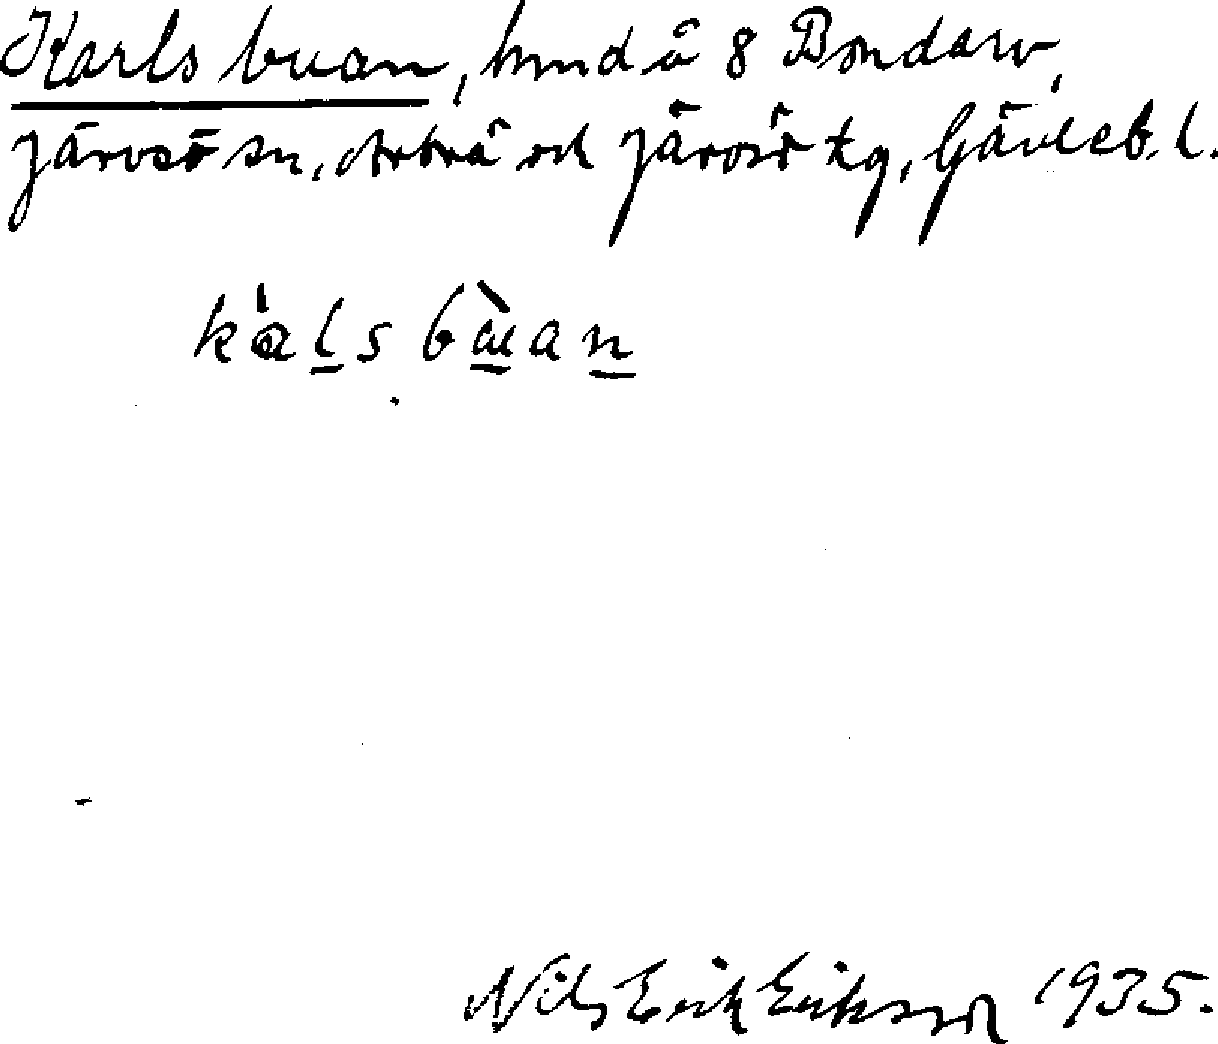 Karlsbuan, hmd å 8 Bondarv,
Järvsö sn, Arbrå och Järvsö tg, Gävleb. l.
Nils Erik Eriksson 1935.